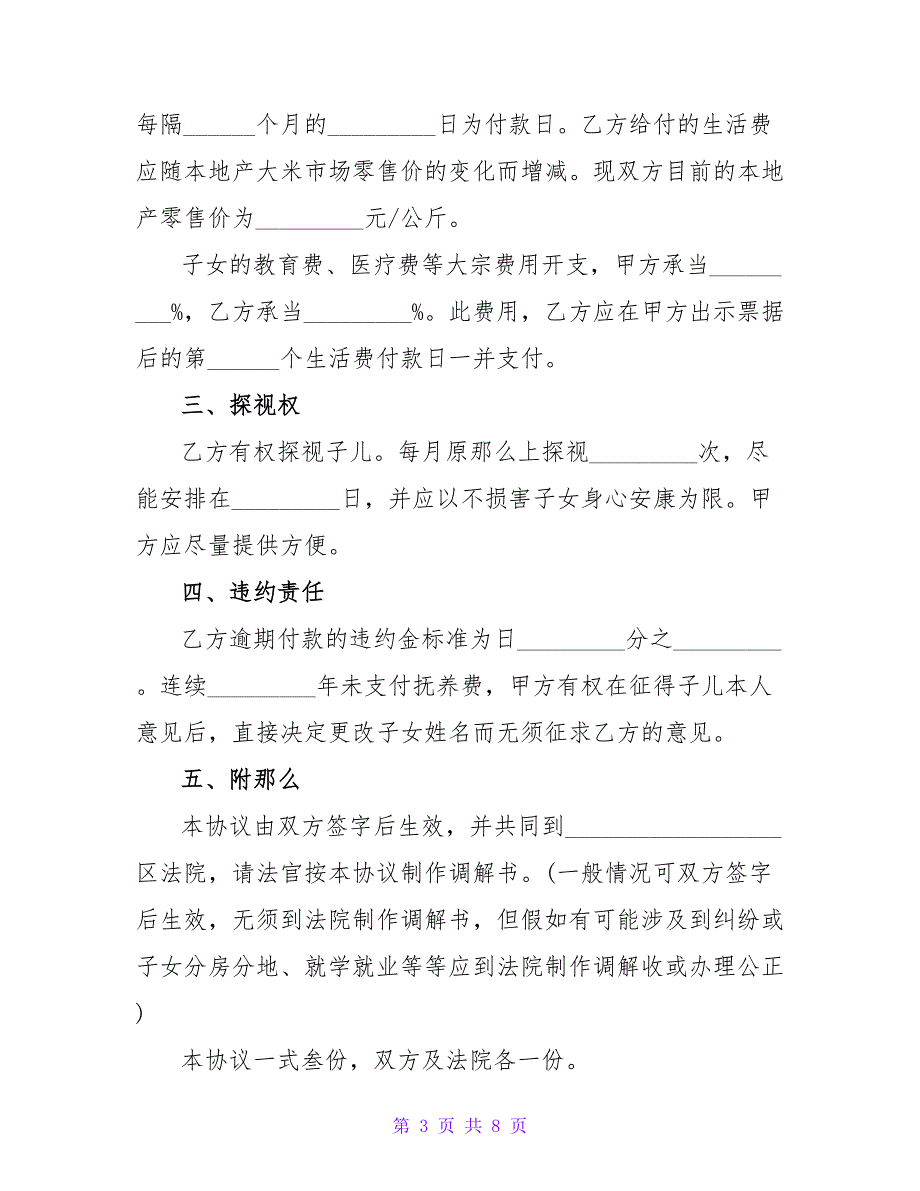 每隔______个月的_________日为付款日。乙方给付的生活费
应随本地产大米市场零售价的变化而增减。现双方目前的本地
产零售价为_________元/公斤。
子女的教育费、医疗费等大宗费用开支，甲方承当______
___%，乙方承当_________%。此费用，乙方应在甲方出示票据
后的第______个生活费付款日一并支付。
三、探视权
乙方有权探视子儿。每月原那么上探视_________次，尽
能安排在_________日，并应以不损害子女身心安康为限。甲
方应尽量提供方便。
四、违约责任
乙方逾期付款的违约金标准为日_________分之_________
。连续_________年未支付抚养费，甲方有权在征得子儿本人
意见后，直接决定更改子女姓名而无须征求乙方的意见。
五、附那么
本协议由双方签字后生效，并共同到__________________
区法院，请法官按本协议制作调解书。(一般情况可双方签字
后生效，无须到法院制作调解书，但假如有可能涉及到纠纷或
子女分房分地、就学就业等等应到法院制作调解收或办理公正
)
本协议一式叁份，双方及法院各一份。
第 3 页 共 8 页